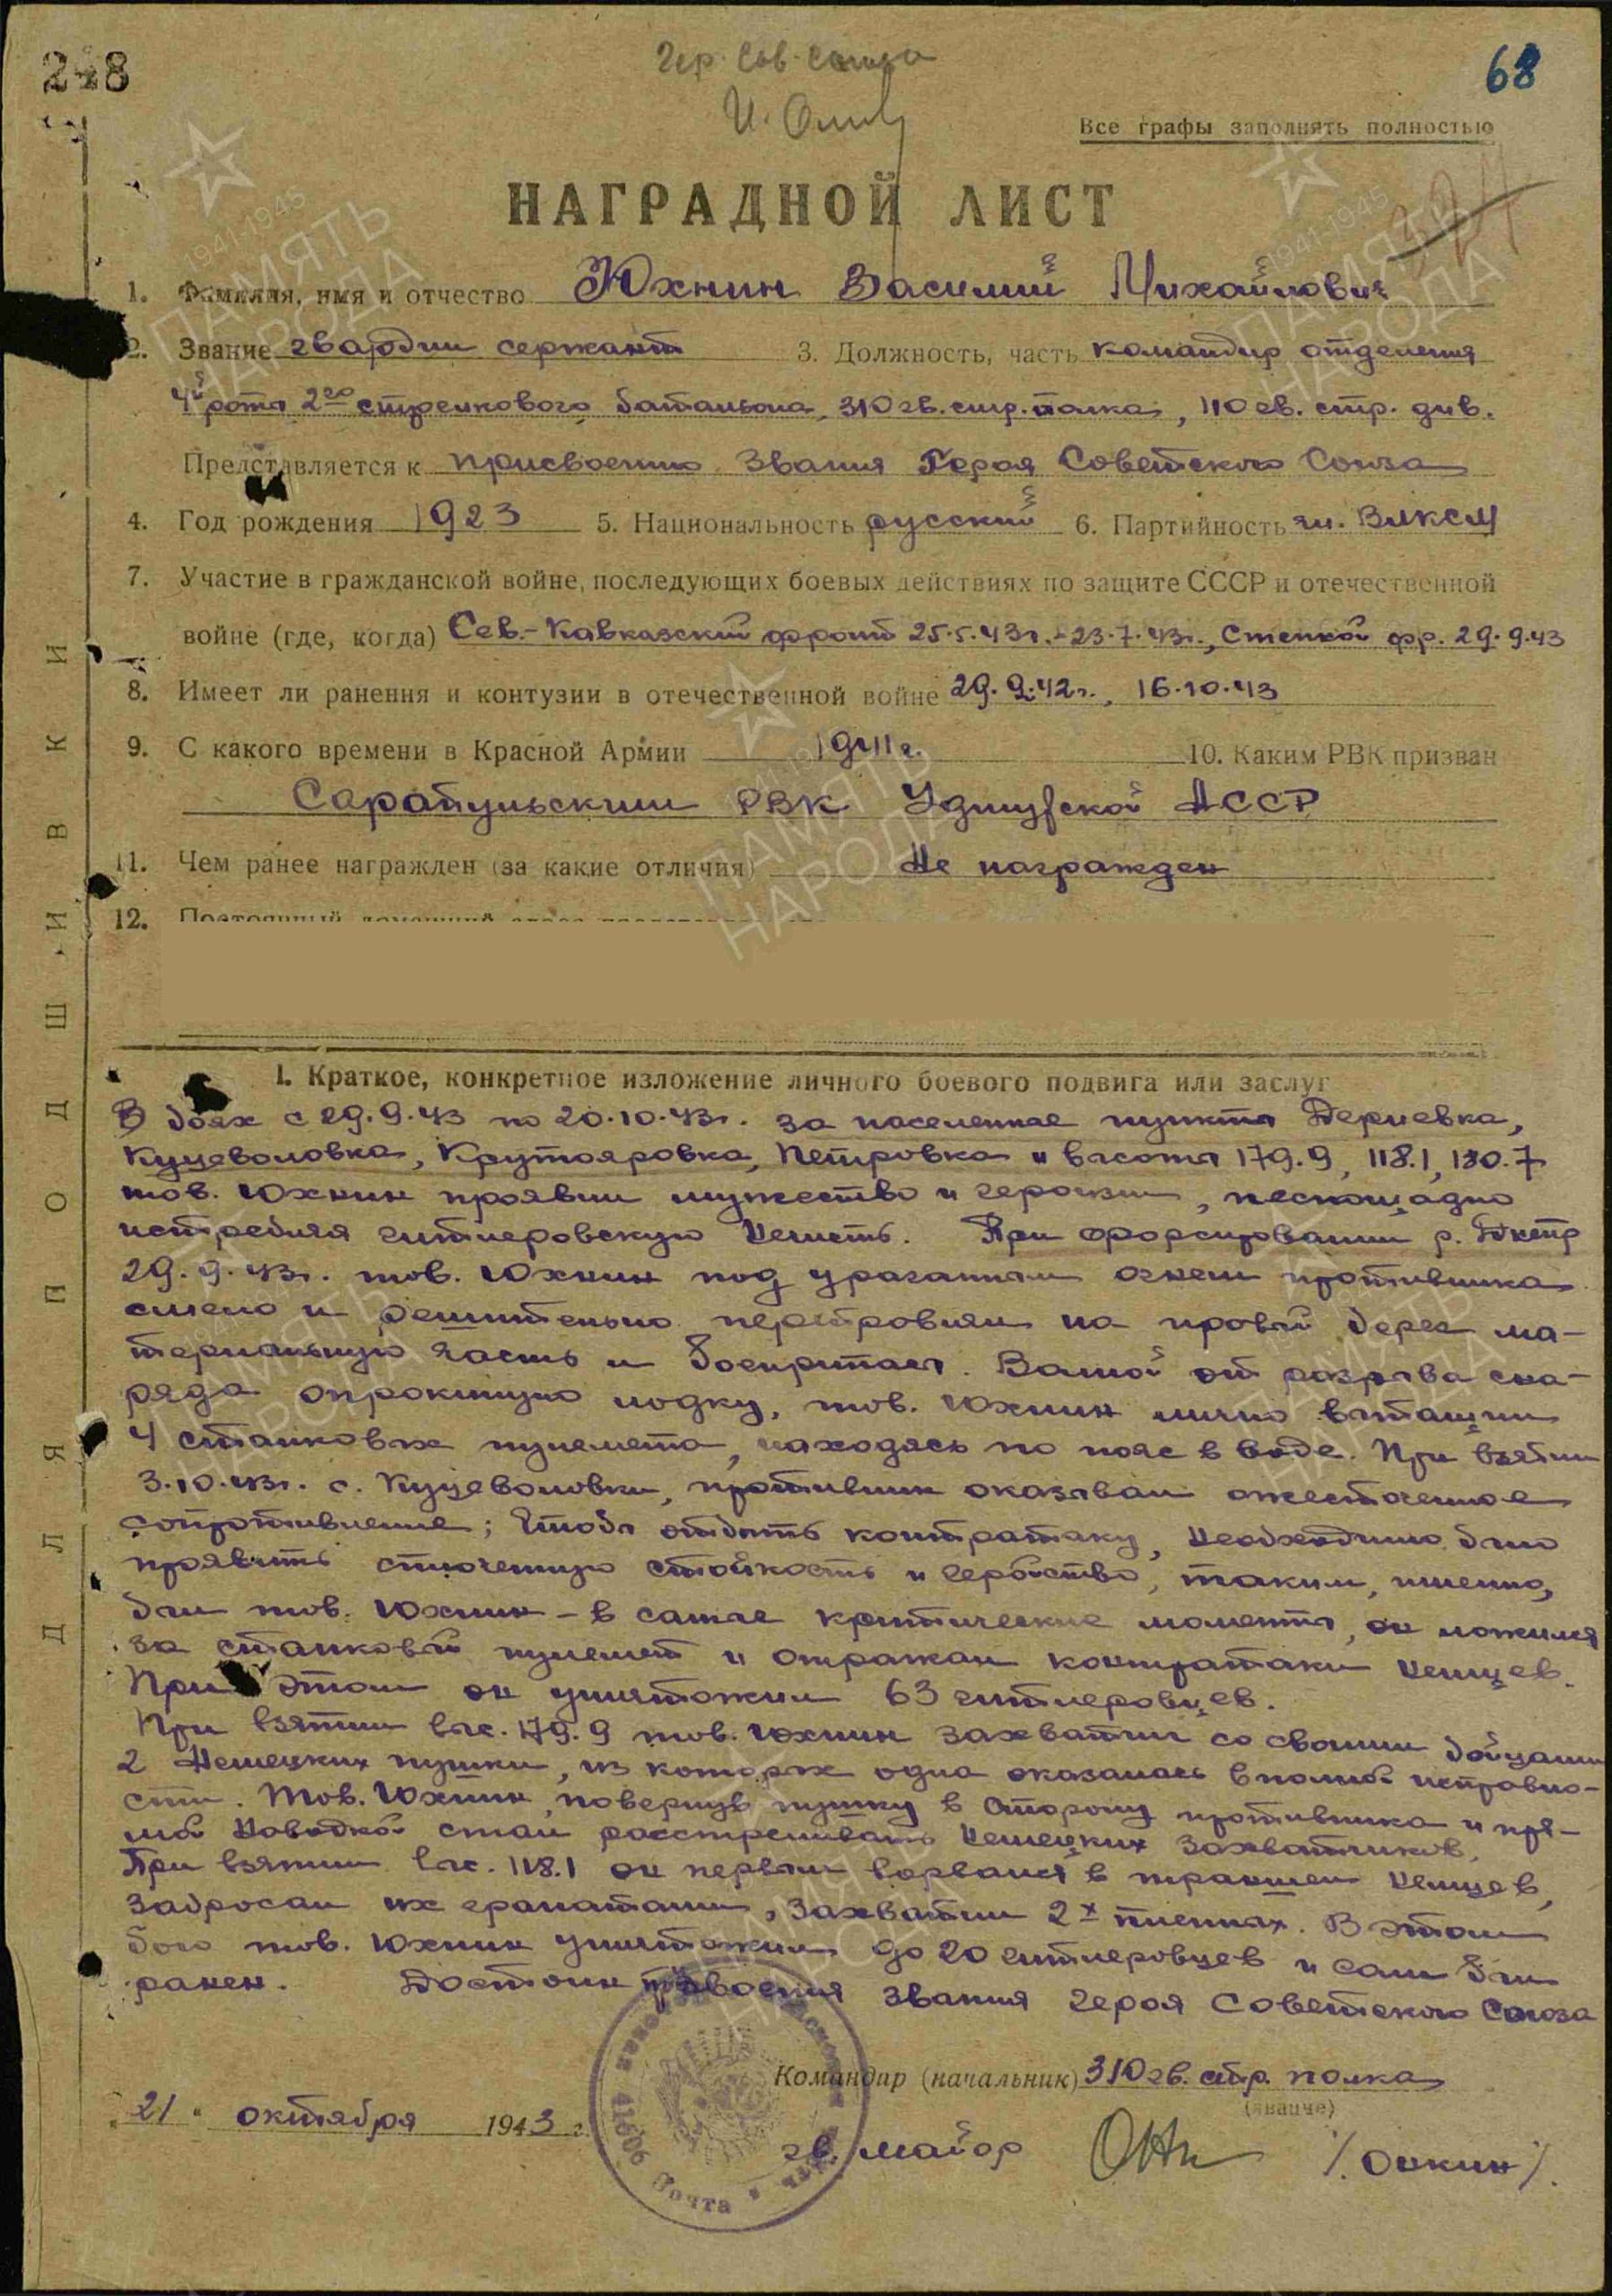 248
Гер. Сов. Союза
68
Все графы заполнять полностью
НАГРАДНОЙ ЛИСТ
1. Фамилия, имя и отчество Юхнин Василий Михайлович
2. Звание гвардии сержант 3. Должность, часть командир отделения
4й роты 2го стрелкового батальона, 310 гв. стр. полка, 110 гв. стр. див.
Представляется к присвоению Звания Героя Советского Союза
4. Год рождения 1923 5. Национальность русский 6. Партийность чл. ВЛКСМ
7. Участие в гражданской войне, последующих боевых действиях по защите СССР и отечественной
войне (где, когда) Сев.-Кавказский фронт 25.5.43г.-23.7.43г., Степной фр. 29.9.43
8. Имеет ли ранения и контузии в отечественной войне 29.9.42г., 16.10.43
9. С какого времени в Красной Армии 1941г. 10. Каким РВК призван
Сарапульским РВК Удмуртской АССР
11. Чем ранее награжден (за какие отличия) Не награжден
12. Постоянный домашний адрес
I. Краткое, конкретное изложение личного боевого подвига или заслуг
В боях с 29.9.43 по 20.10.43г. за населенные пункты Дериевка,
Куцеволовка, Крутояровка, Петровка и высоты 179.9, 118.1, 130.7
тов. Юхнин проявил мужество и героизм, нескощадно
истребляя гитлеровскую нечисть. При форсировании р. Днепр
29.9.43г. тов. Юхнин под ураганным огнем противника
смело и решительно переправлял на правый берег ма-
териальную часть и боеприпасы. Волной от разрыва сна-
ряда опрокинуло лодку, тов. Юхнин лично вытащил
4 станковых пулемета, находясь по пояс в воде. При взятии
3.10.43г. с. Куцеволовки, противник оказывал ожесточенное
сопротивление; Чтобы отбить контратаку, необходимо было
проявить стойкость и геройство, таким, именно,
был тов. Юхнин - в самые критические моменты, он ложился
за станковый пулемет и отражал контратаки немцев.
При этом он уничтожил 63 гитлеровцев.
При взятии выс. 179.9 тов. Юхнин захватил со своими бойцами
2 немецких пушки, из которых одна оказалась в полной исправно-
сти. Тов. Юхнин, повернув пушку в сторону противника и пря-
мой наводкой стал расстреливать немецких захватчиков.
При взятии выс. 118.1 он первым ворвался в траншеи немцев,
забросал их гранатами, захватил 2х пленных. В этом
бою тов. Юхнин уничтожил до 20 гитлеровцев и сам был
ранен. Достоин присвоения звания Героя Советского Союза
Командир (начальник) 310 гв. стр. полка
(звание)
"21" октября 1943 г.
гв. майор /Онкин/.
41606 Почта
ДЛЯ ПОДШИВКИ
1941-1945
ПАМЯТЬ
НАРОДА